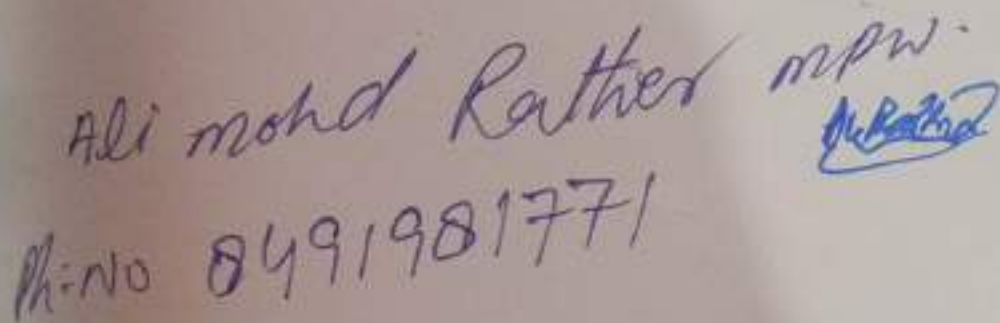 Ali mohd Rather mpw.
Ph:No 8491981771